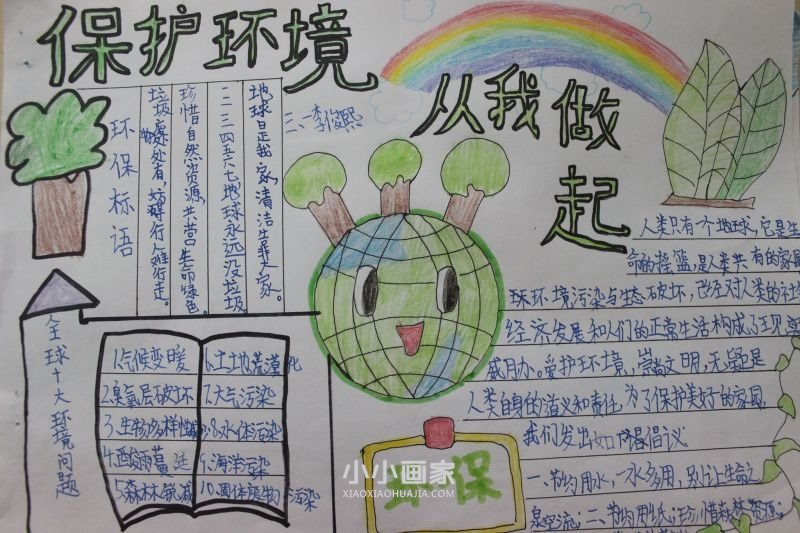 保护环境
从我做起
三、一李俊熙
环保标语
地球是我家,清洁靠大家。
一二三四五六七,地球永远没垃圾
珍惜自然资源,共营生命绿色。
垃圾处处有,妨碍行人难行走。
全球十大环境问题
1.气候变暖
2.臭氧层破坏
3.生物多样性减
4.酸雨蔓延
5.森林锐减
6.土地荒漠化
7.大气污染
8.水体污染
9.海洋污染
10.固体废物污染
人类只有一个地球,它是生
命的摇篮,是人类共有的家园
环境污染与生态破坏,已经对人类的社
经济发展和人们的正常生活构成了现实
威胁。爱护环境,崇尚文明,无疑是
人类自身的道义和责任,为了保护美好的家园,
我们发出如下倡议
一、节约用水,一水多用,别让生命之
泉空流;二、节约用纸;珍惜森林资源;
保
小小画家
XIAOXIAOHUAJIA.COM